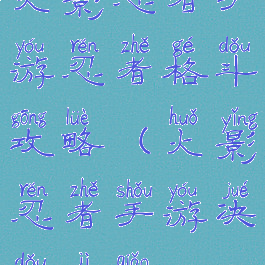 yóu rěn zhě gé dǒu
游忍者格斗
gōng lüè huǒ yǐng
攻略（火影
rěn zhě shǒu yóu jué
忍者手游决
dǒu jì qiǎo